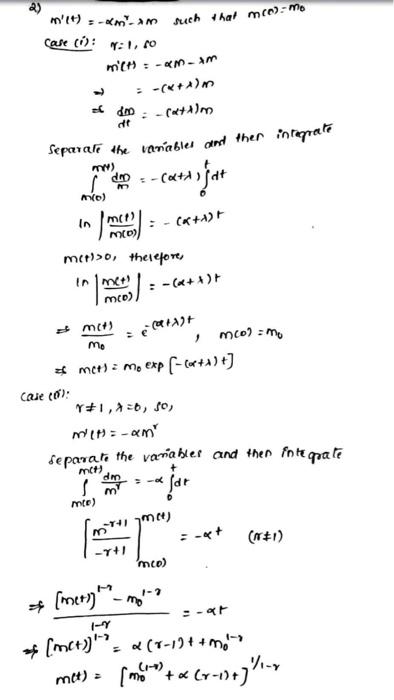 2) m'(t) = -αm^r - λm such that m(0) = m₀
Case (i): r=1, so
m'(t) = -αm - λm
⇒ = -(α+λ)m
⇒ dm/dt = -(α+λ)m
Separate the variables and then integrate
∫_{m(0)}^{m(t)} dm/m = -(α+λ) ∫_0^t dt
ln |m(t)/m(0)| = -(α+λ)t
m(t)>0, therefore,
ln |m(t)/m(0)| = -(α+λ)t
⇒ m(t)/m₀ = e^{-(α+λ)t}, m(0) = m₀
⇒ m(t) = m₀ exp[-(α+λ)t]
Case (ii):
r≠1, λ=0, so,
m'(t) = -αm^r
Separate the variables and then integrate
∫_{m(0)}^{m(t)} dm/m^r = -α ∫_0^t dt
[m^{-r+1}/(-r+1)]_{m(0)}^{m(t)} = -αt (r≠1)
⇒ ([m(t)]^{1-r} - m₀^{1-r})/(1-r) = -αt
⇒ [m(t)]^{1-r} = α(r-1)t + m₀^{1-r}
m(t) = [m₀^{(1-r)} + α(r-1)t]^{1/1-r}